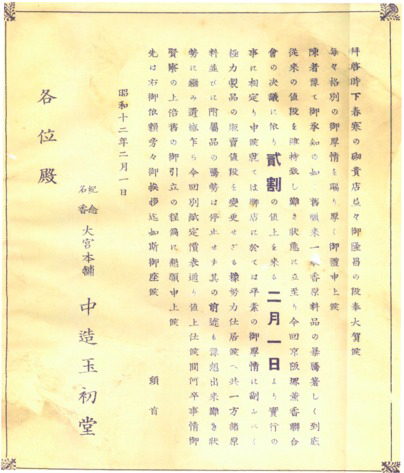 拝啓時下春寒の砌貴店益々御隆昌の段奉大賀候
毎々格別の御厚情を賜り厚く御禮申上候
陳者豫て御承知の如く舊臘来一般香原料品の暴騰著しく到底
従来の値段を維持致し難き状態に立至り今回京阪堺薫香聯合
會の决議に依り貳割の値上を来る二月一日より實行の
事に相定り申候就ては弊店に於ては平素の御厚情に副ふべく
極力製品の販賣値段を変更せざる様努力仕居候へ共一方諸原
料並びに附屬品の騰勢は停止せず其の前途も豫想出来難き状
勢に鑑み遺憾乍ら今回別紙定價表通り値上仕候間何卒事情御
賢察の上倍舊の御引立の程偏に懇願申上候
先は右御依頼旁々御挨拶迄如斯御座候
頓首
昭和十二年二月一日
妃念
名香
大宮本舗 中造玉初堂
各位殿